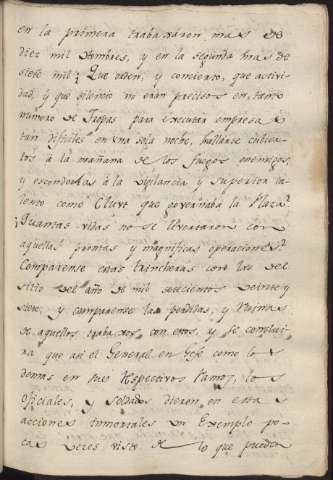 en la primera trabaxaron mas de
diez mil hombres, y en la segunda mas de
siete mil; Que orden, y concierto, que activi
dad, y que silencio no eran precisos en tanto
numero de Tropas para executar empresa
tan dificiles en una sola noche, hallarse cubier
tos à la mañana de los fuegos enemigos,
y esconderlas à la vigilancia y superior ta
lento como Eliot que governaba la Plaza?
Quantas vidas no se livertaron con
aquellas promtas y magnificas operaciones?
Comparense estas trincheras con las del
sitio del año de mil setecientos veinte y
siete; y comparense las perdidas, y Ruinas
de aquellos trabaxos, con estos, y se conclui
ra que asi el General en Jefe como los
demas en sus Respectivos Ramos, los
oficiales, y soldados dieron en estas
acciones inmortales un Exemplo po
cas veces visto de lo que pueden